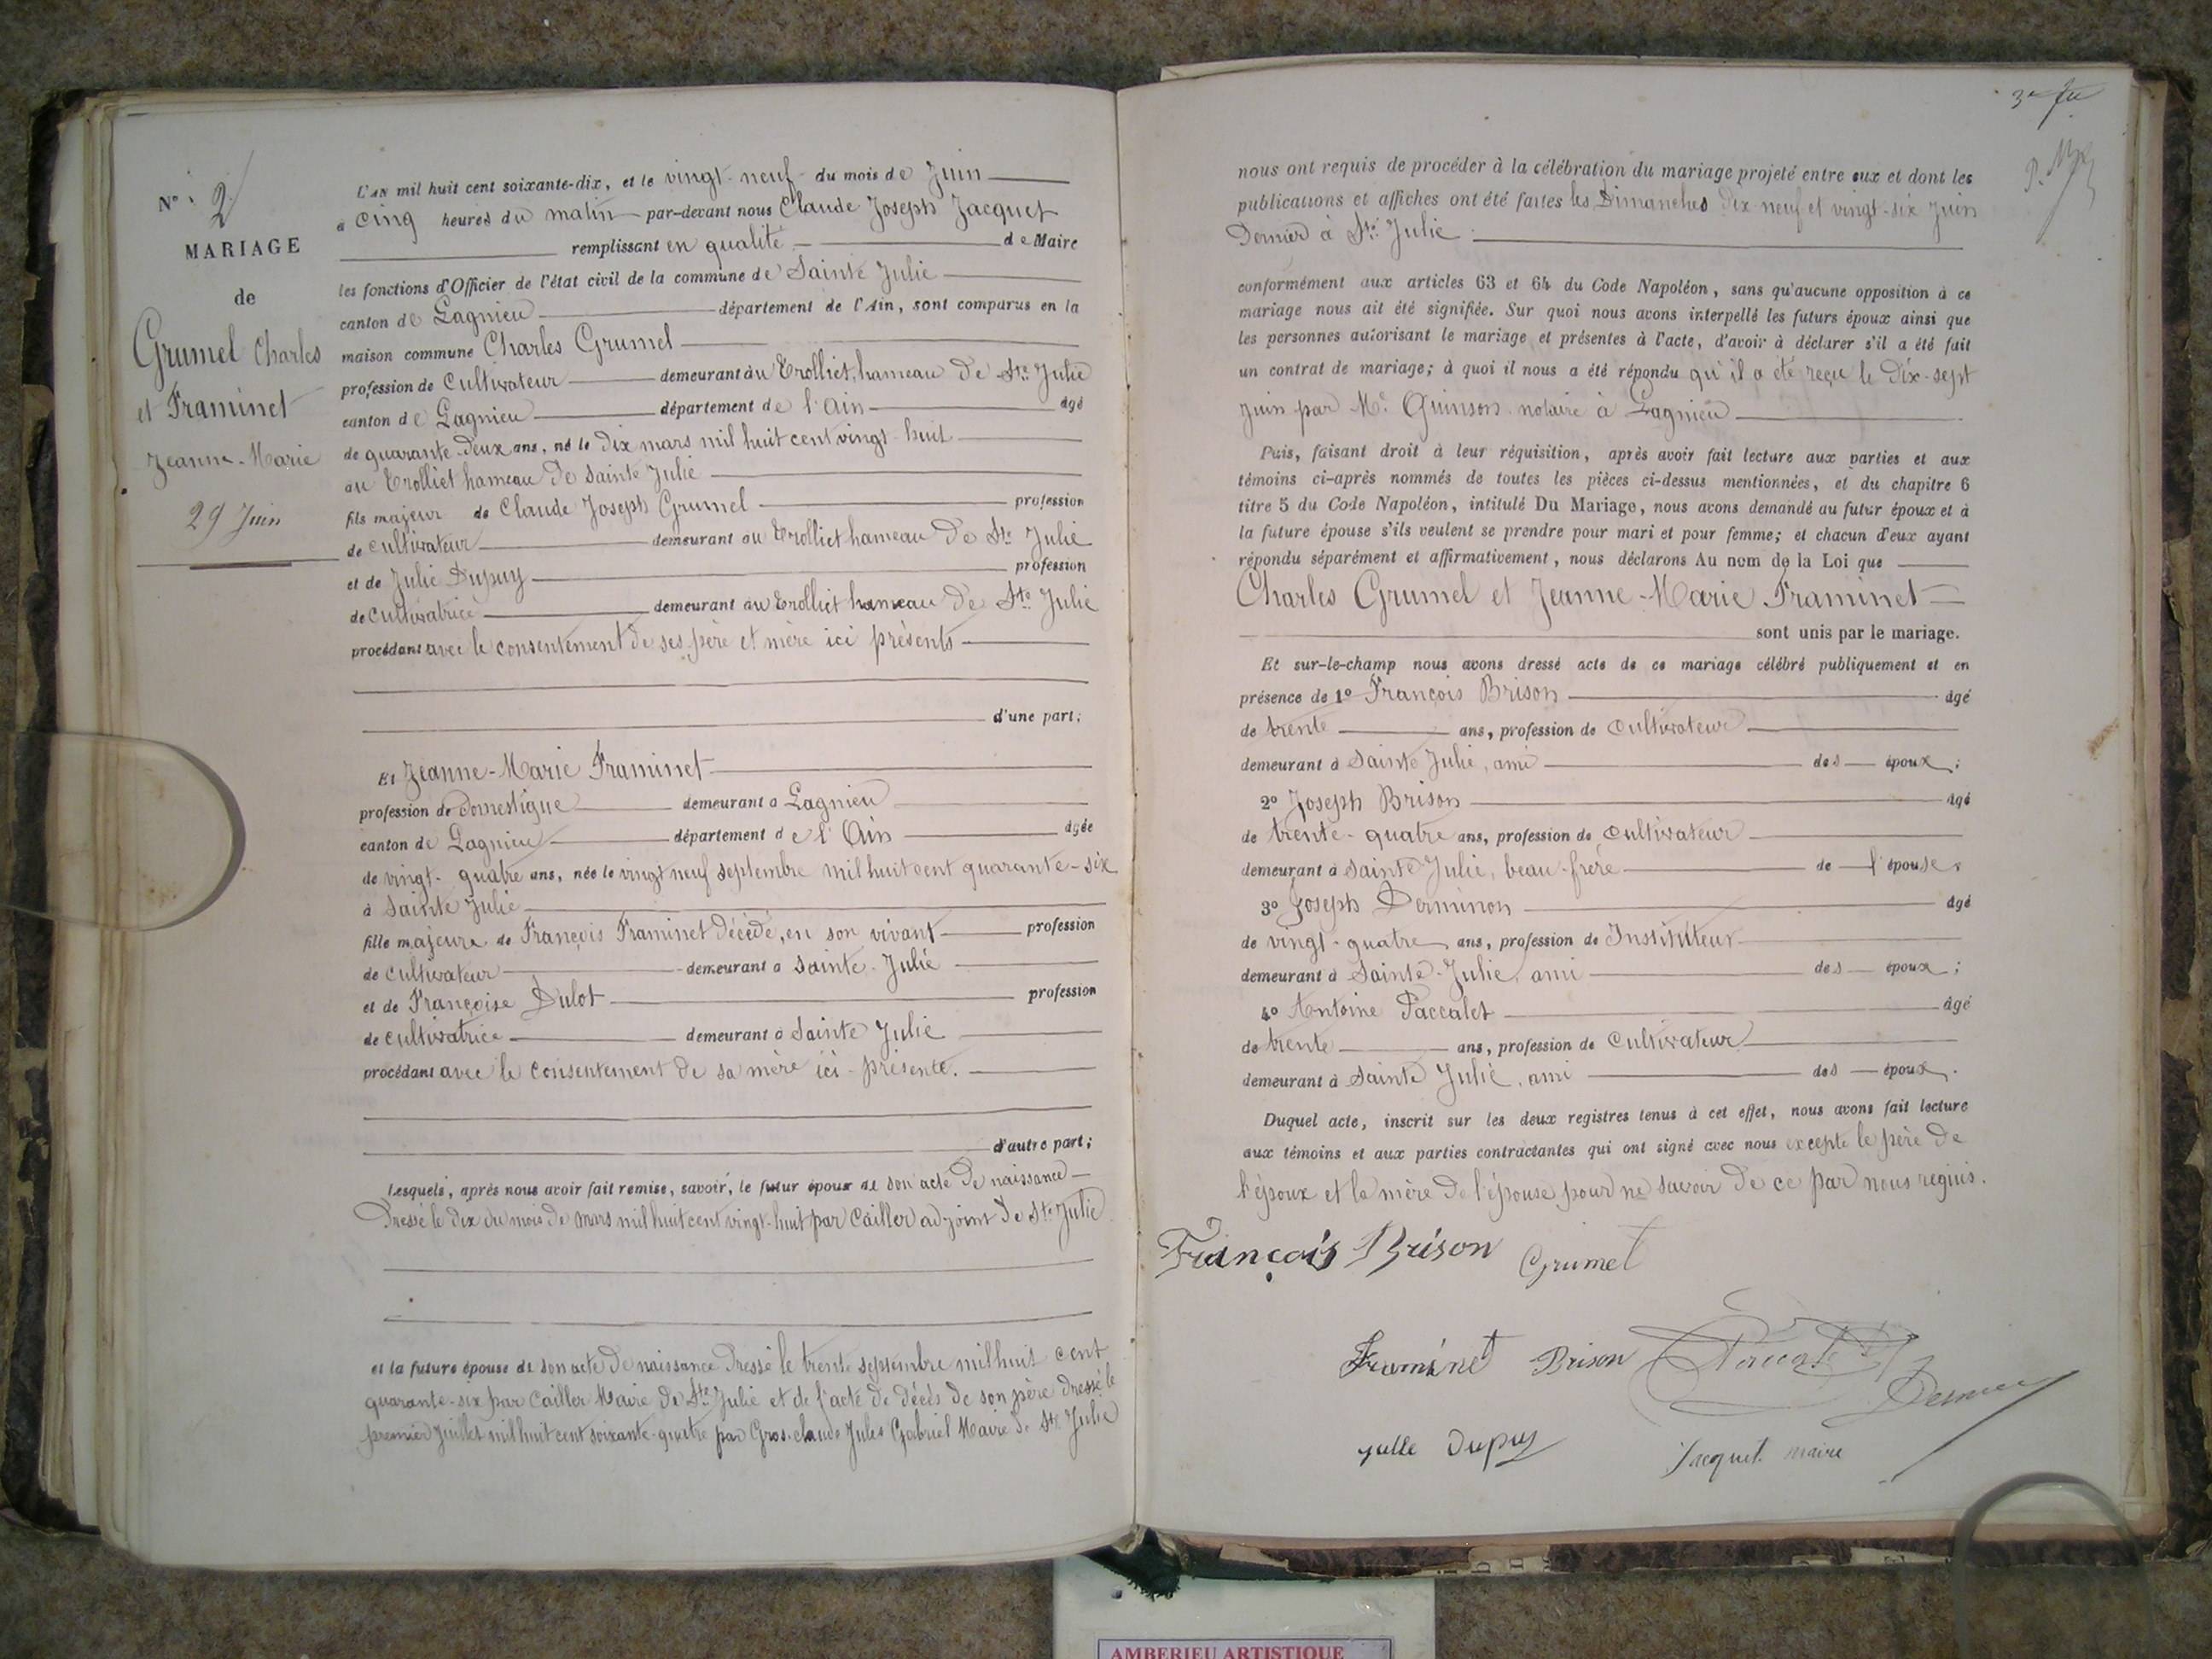 N° 2
MARIAGE
de
Grumel Charles
et Framinet
Jeanne-Marie
29 Juin
L'AN mil huit cent soixante-dix, et le vingt-neuf du mois de Juin
à cinq heures du matin par-devant nous Claude Joseph Jacquet
remplissant en qualité de Maire
les fonctions d'Officier de l'état civil de la commune de Sainte Julie
canton de Lagnieu département de l'Ain, sont comparus en la
maison commune Charles Grumel
profession de Cultivateur demeurant au Trolliet, hameau de Ste Julie
canton de Lagnieu département de l'Ain âgé
de quarante-deux ans, né le dix mars mil huit cent vingt-huit
au Trolliet hameau de Sainte Julie
fils majeur de Claude Joseph Grumel profession
de cultivateur demeurant au Trolliet hameau de Ste Julie
et de Julie Dupuy profession
de cultivatrice demeurant au Trolliet hameau de Ste Julie
procédant avec le consentement de ses père et mère ici présents
d'une part;
Et Jeanne-Marie Framinet
profession de domestique demeurant à Lagnieu
canton de Lagnieu département de l'Ain âgée
de vingt-quatre ans, née le vingt neuf septembre mil huit cent quarante-six
à Sainte Julie
fille majeure de François Framinet décédé, en son vivant profession
de cultivateur demeurant à Sainte-Julie
et de Françoise Dulot profession
de cultivatrice demeurant à Sainte Julie
procédant avec le consentement de sa mère ici-présente.
d'autre part;
Lesquels, après nous avoir fait remise, savoir, le futur époux de son acte de naissance
dressé le dix du mois de mars mil huit cent vingt-huit par Cailler adjoint de Ste Julie
et la future épouse de son acte de naissance dressé le trente septembre mil huit cent
quarante-six par Cailler Maire de Ste Julie et de l'acte de décès de son père dressé le
premier Juillet mil huit cent soixante-quatre par Gros-claude Jules Gabriel Maire de Ste Julie
nous ont requis de procéder à la célébration du mariage projeté entre eux et dont les
publications et affiches ont été faites les Dimanches dix neuf et vingt-six Juin
dernier à Ste Julie
conformément aux articles 63 et 64 du Code Napoléon, sans qu'aucune opposition à ce
mariage nous ait été signifiée. Sur quoi nous avons interpellé les futurs époux ainsi que
les personnes autorisant le mariage et présentes à l'acte, d'avoir à déclarer s'il a été fait
un contrat de mariage; à quoi il nous a été répondu qu'il a été reçu le dix-sept
Juin par Me Quinson notaire à Lagnieu
Puis, faisant droit à leur réquisition, après avoir fait lecture aux parties et aux
témoins ci-après nommés de toutes les pièces ci-dessus mentionnées, et du chapitre 6
titre 5 du Code Napoléon, intitulé Du Mariage, nous avons demandé au futur époux et à
la future épouse s'ils veulent se prendre pour mari et pour femme; et chacun d'eux ayant
répondu séparément et affirmativement, nous déclarons Au nom de la Loi que
Charles Grumel et Jeanne-Marie Framinet
sont unis par le mariage.
Et sur-le-champ nous avons dressé acte de ce mariage célébré publiquement et en
présence de 1° François Brison âgé
de trente ans, profession de Cultivateur
demeurant à Sainte Julie, ami des époux;
2° Joseph Brison âgé
de trente-quatre ans, profession de Cultivateur
demeurant à Sainte Julie, beau-frère de l'épouse;
3° Joseph Derminon âgé
de vingt-quatre ans, profession de Instituteur
demeurant à Sainte-Julie, ami des époux;
4° Antoine Paccalet âgé
de trente ans, profession de Cultivateur
demeurant à Sainte Julie, ami des époux.
Duquel acte, inscrit sur les deux registres tenus à cet effet, nous avons fait lecture
aux témoins et aux parties contractantes qui ont signé avec nous excepté le père de
l'époux et la mère de l'épouse pour ne savoir de ce par nous requis.
François Brison Grumel
Framinet Brison
Julle Dupuy Jacquet maire
AMBERIEU ARTISTIQUE